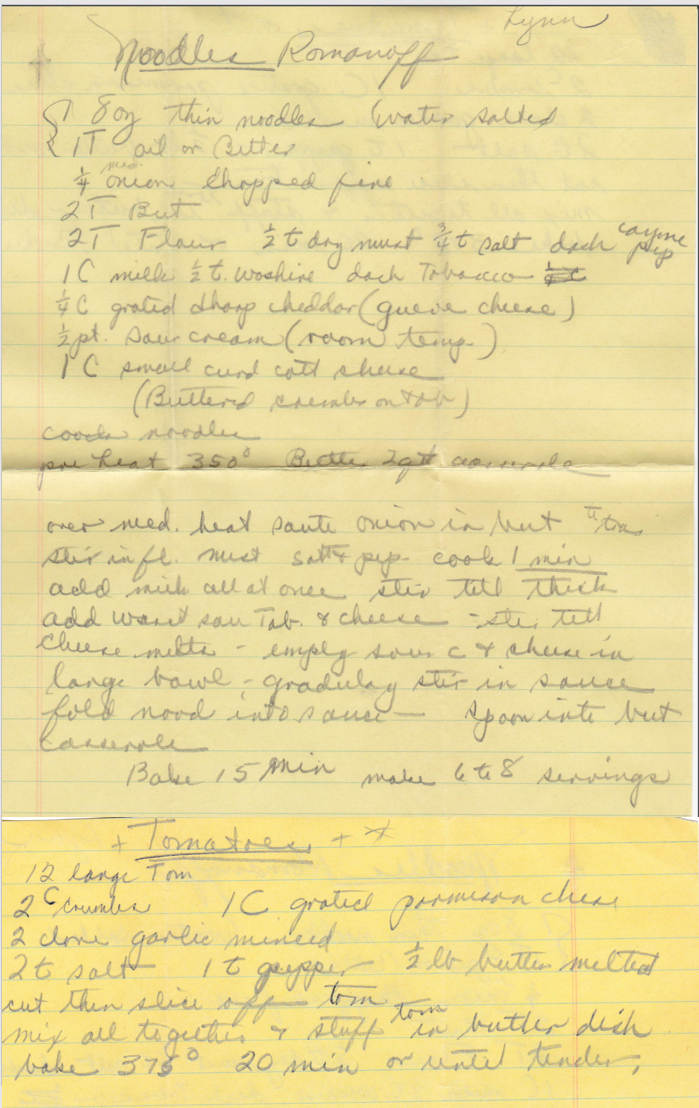 Lynn
Noodles Romanoff
1 8oz thin noodles (water salted
1T oil or Butter
1/4 med. onion chopped fine
2T But
2T Flour 1/2 t dry must 3/4 t salt dash cayne pep
1C milk 1/2 t. Woshire dash Tobacco
1/4 C grated sharp cheddar (gueve cheese)
1/2 pt. sour cream (room temp.)
1 C small curd cott cheese
(Buttered crumbs on top)
cook noodles
pre heat 350° Butter 2qt casserole
over med. heat saute onion in but
stir in fl. must salt & pep. cook 1 min
add milk all at once stir till thick
add worst sau Tab. & cheese - stir till
cheese melts - empty sour c & cheese in
large bowl - gradulay stir in sauce
fold nood into sauce - spoon into but
casserole
Bake 15 min make 6 to 8 servings
+ Tomatoes + +
12 large Tom
2 C crumbs 1C grated parmison chese
2 clove garlic minced
2t salt 1t pepper 1/2 lb butter melted
cut thin slice off tom
mix all together & stuff tom in butter dish
bake 375° 20 min or until tender.